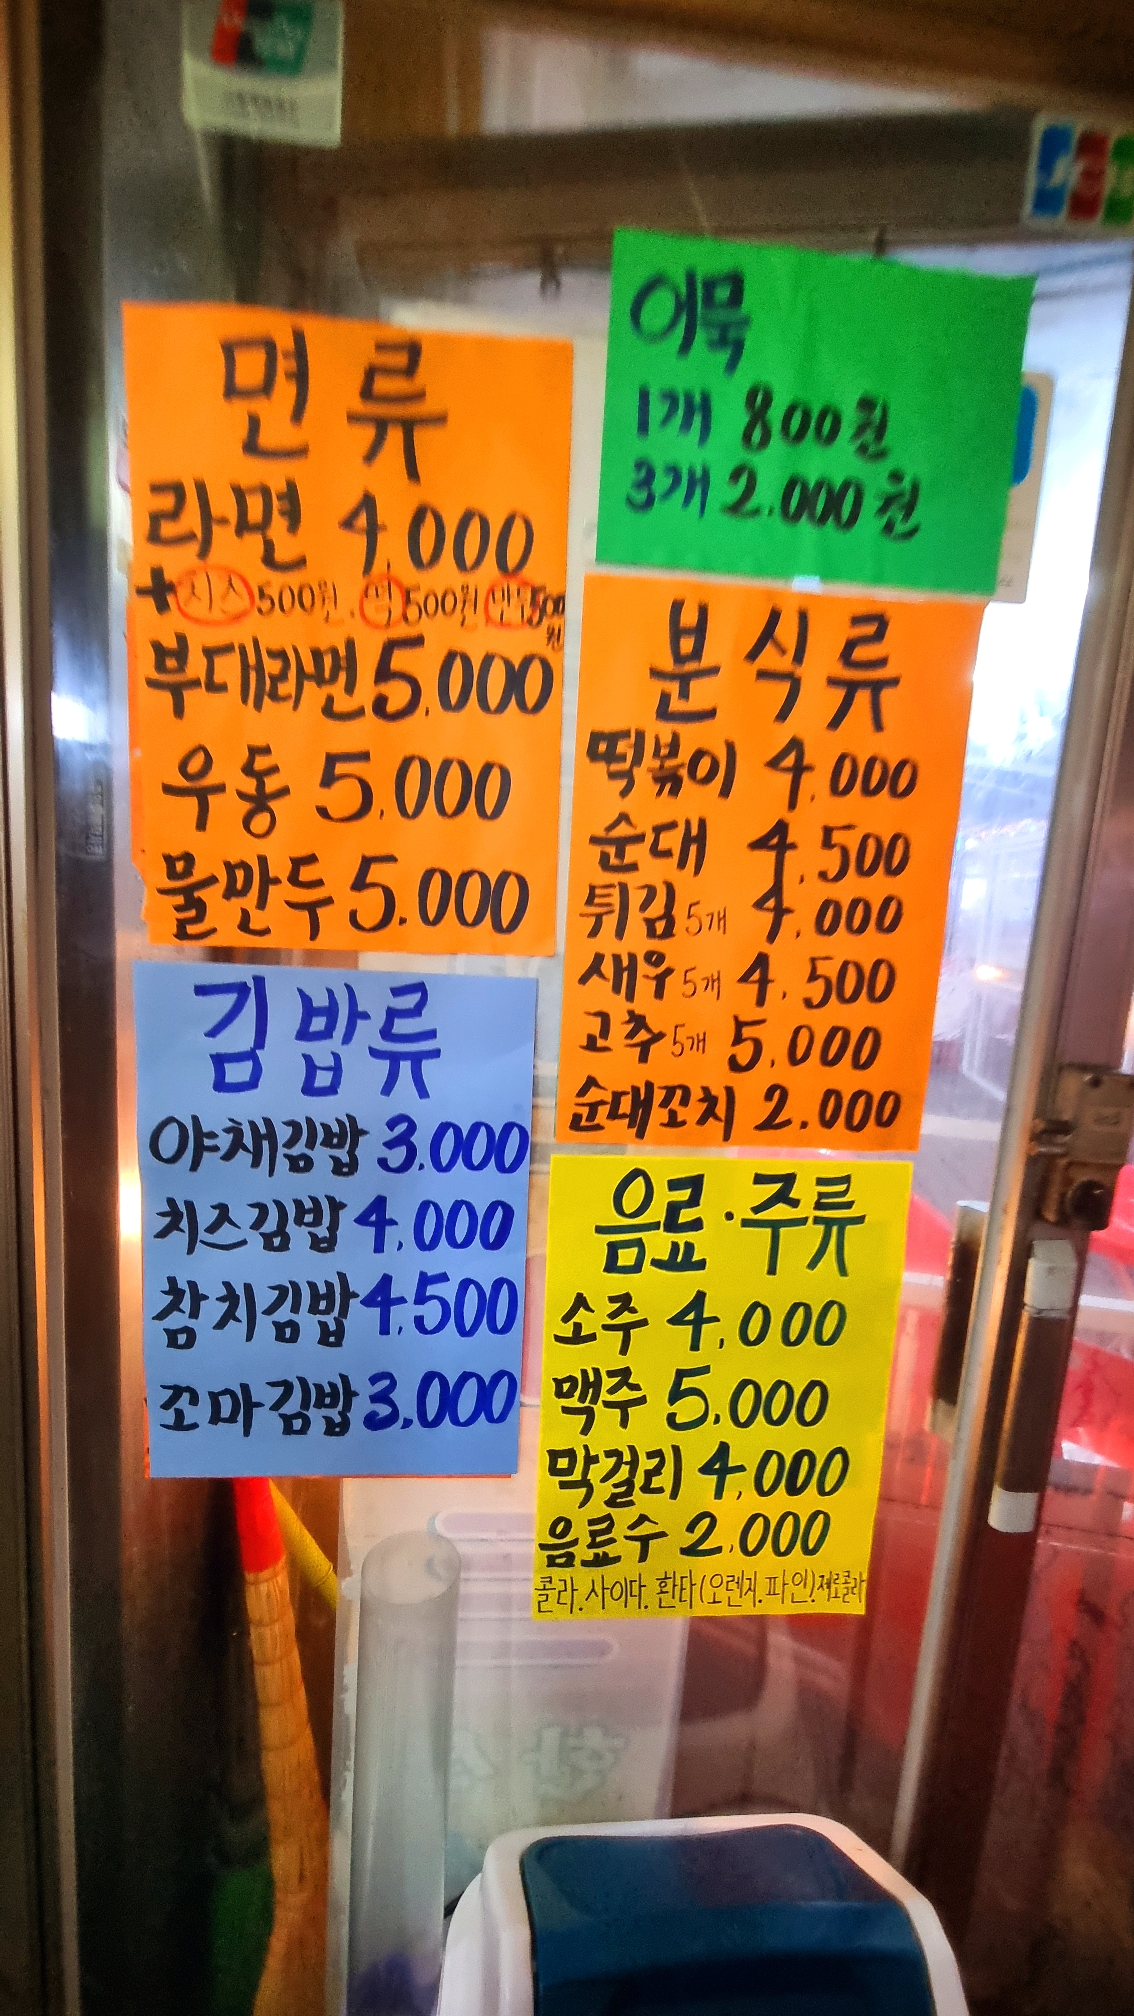 면류
라면 4,000
+치즈500원. 떡500원 만두500원
부대라면 5,000
우동 5,000
물만두 5.000
김밥류
야채김밥 3.000
치즈김밥 4,000
참치김밥 4,500
꼬마김밥 3,000
어묵
1개 800원
3개 2.000원
분식류
떡볶이 4,000
순대 4,500
튀김 5개 4,000
새우 5개 4,500
고추 5개 5,000
순대꼬치 2.000
음료·주류
소주 4,000
맥주 5,000
막걸리 4,000
음료수 2,000
콜라.사이다.환타(오렌지.파인)제로콜라